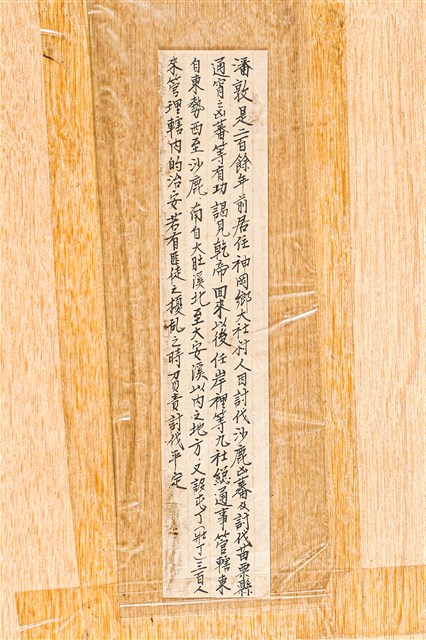 潘敦是二百餘年前居住神岡鄉大社村人因討伐沙鹿凶蕃及討伐苗栗縣
通宵凶蕃等有功 謁見乾帝 回來以後任岸裡等九社總通事管轄東
自東勢西至沙鹿 南自大肚溪北至大安溪以內之地方.又設屯丁(壯丁)三百人
來管理轄內的治安若有匪徒之擾亂之時負責討伐平定